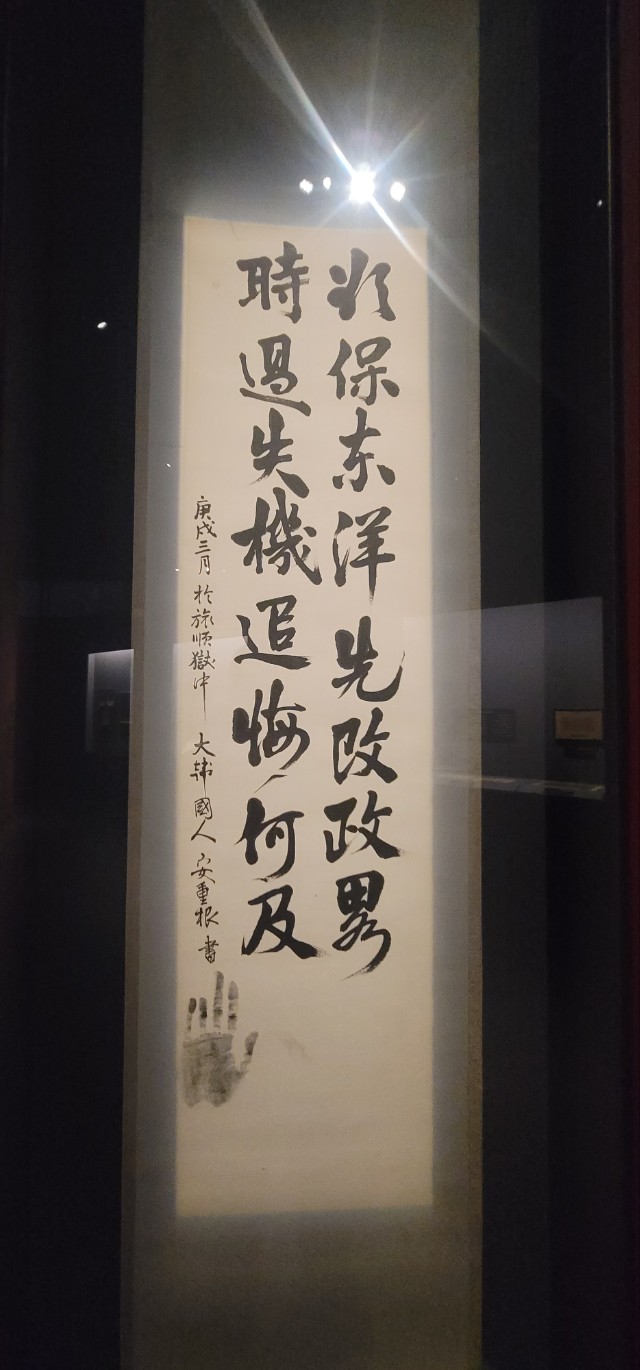 欲保东洋先改政畧
時過失機追悔何及
庚戌三月 於旅順獄中 大韩國人 安重根 書